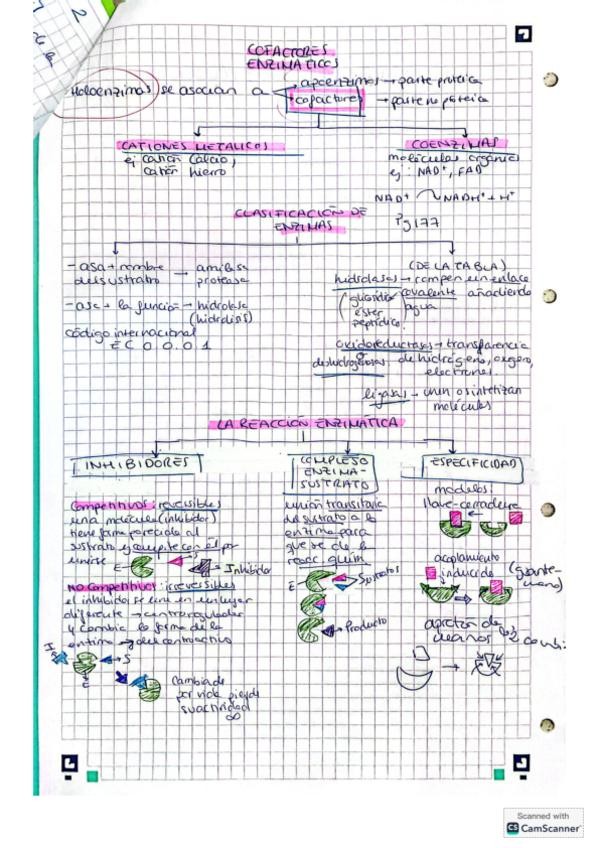 2
COFACTORES
ENZIMÁTICOS
Holoenzimas se asocian a
apoenzimas → parte proteica
cofactores → parte no proteica
CATIONES METÁLICOS
ej catión calcio,
catión hierro
COENZIMAS
moléculas orgánica
ej: NAD+, FAD
NAD+ NADH + H+
Pg 177
CLASIFICACIÓN DE
ENZIMAS
- asa + nombre
del sustrato → amilasa
proteasa
- asa + la función → hidrolasa
(hidrólisis)
código internacional
EC 0.0.0.1
(DE LA TABLA)
hidrolasas → rompen un enlace
covalente añadiendo
agua
(glicosídico
ester
peptídico
oxidoreductasas → transparencia
deshidrogenasas de hidrógeno, oxígeno,
electrones.
ligasas → unen o sintetizan
moléculas
LA REACCIÓN ENZIMÁTICA
INHIBIDORES
Competitivos: irreversibles
una molécula (inhibidor)
tiene forma parecida al
sustrato y compite con él por
unirse
E
Inhibidor
No Competitivos: irreversibles
el inhibidor se une en un lugar
diferente → centro regulador
y cambia la forma de la
enzima → del centro activo
S
E
Cambia de
por vida pierde
su actividad
∞
COMPLEJO
ENZIMA-
SUSTRATO
unión transitoria
del sustrato a la
enzima para
que se dé la
reacc. quím
E
Sustratos
Producto
ESPECIFICIDAD
modelos:
llave-cerradura
acoplamiento
inducido (guante-
mano)
apretón de
manos los 2
Scanned with
CS CamScanner